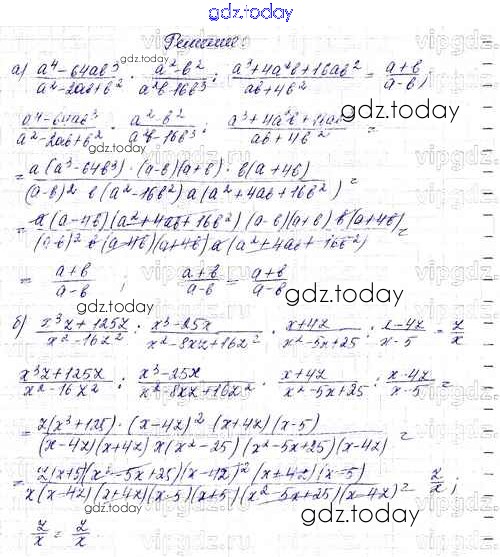 gdz.today
Решение:
а) (a⁴-64ab³)/(a²-2ab+b²) · (a²-b²)/(a²b-16b³) : (a³+4a²b+16ab²)/(ab+4b²) = (a+b)/(a-b);
gdz.today
(a⁴-64ab³)/(a²-2ab+b²) · (a²-b²)/(a²b-16b³) : (a³+4a²b+16ab²)/(ab+4b²) =
= (a(a³-64b³)·(a-b)(a+b)·b(a+4b))/((a-b)² b(a²-16b²)a(a²+4ab+16b²)) =
gdz.today
= (a(a-4b)(a²+4ab+16b²)(a-b)(a+b)b(a+4b))/((a-b)² b(a-4b)(a+4b)a(a²+4ab+16b²)) =
= (a+b)/(a-b); (a+b)/(a-b) = (a+b)/(a-b)
gdz.today
б) (x³z+125z)/(x²-16z²) : (x³-25x)/(x²-8xz+16z²) · (x+4z)/(x²-5x+25) : (x-4z)/(x-5) = z/x
(x³z+125z)/(x²-16z²) : (x³-25x)/(x²-8xz+16z²) · (x+4z)/(x²-5x+25) : (x-4z)/(x-5) =
gdz.today
= (z(x³+125)·(x-4z)²(x+4z)(x-5))/((x-4z)(x+4z)x(x²-25)(x²-5x+25)(x-4z)) =
= (z(x+5)(x²-5x+25)(x-4z)²(x+4z)(x-5))/(x(x-4z)(x+4z)(x-5)(x+5)(x²-5x+25)(x-4z)) = z/x;
z/x = z/x
gdz.today